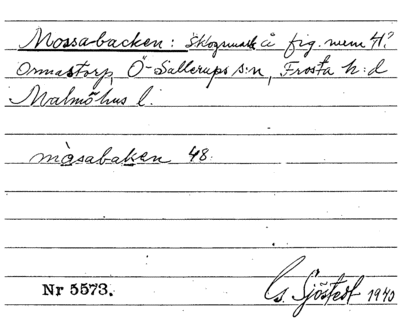 Mossa-backen: Skogsmark å fig. mem 41?
Ormastorp, Ö-Sallerups s:n, Frosta h:d
Malmöhus l.
måsabaken 48.
Nr 5573.
G. Sjöstedt 1940